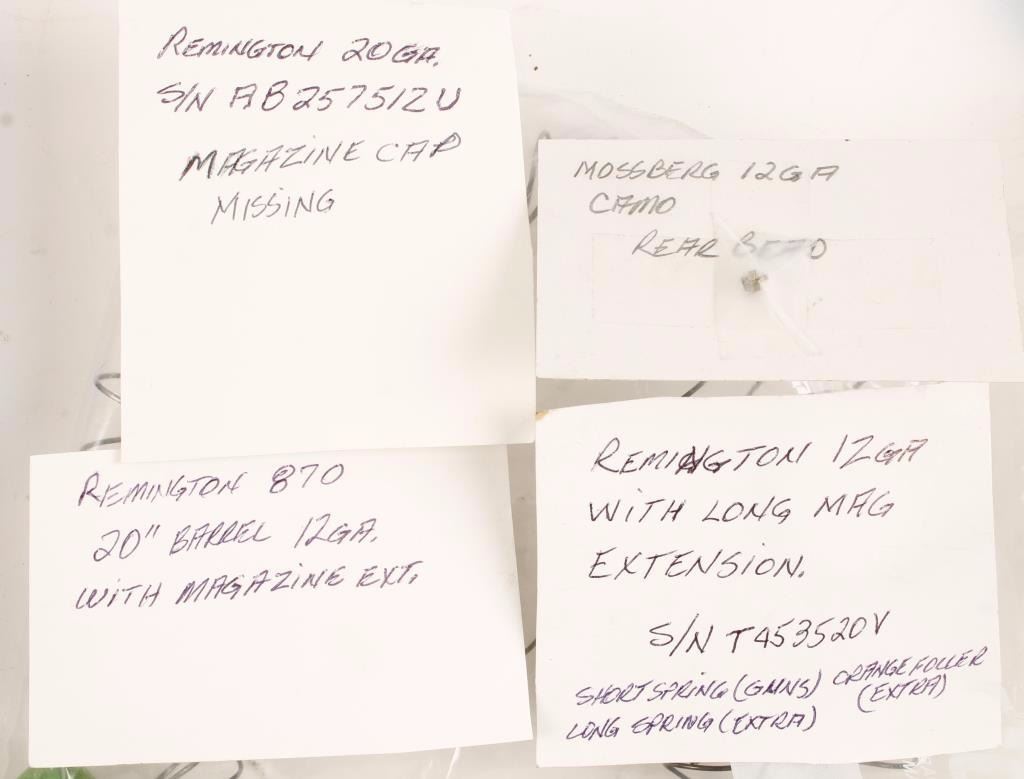 REMINGTON 20GA.
S/N AB257512U
MAGAZINE CAP
MISSING
MOSSBERG 12GA
CAMO
REAR BEAD
REMINGTON 870
20" BARREL 12GA.
WITH MAGAZINE EXT.
REMINGTON 12GA
WITH LONG MAG
EXTENSION.
S/N T453520V
SHORT SPRING (GUNS) ORANGE FOLLER
(EXTRA)
LONG SPRING (EXTRA)